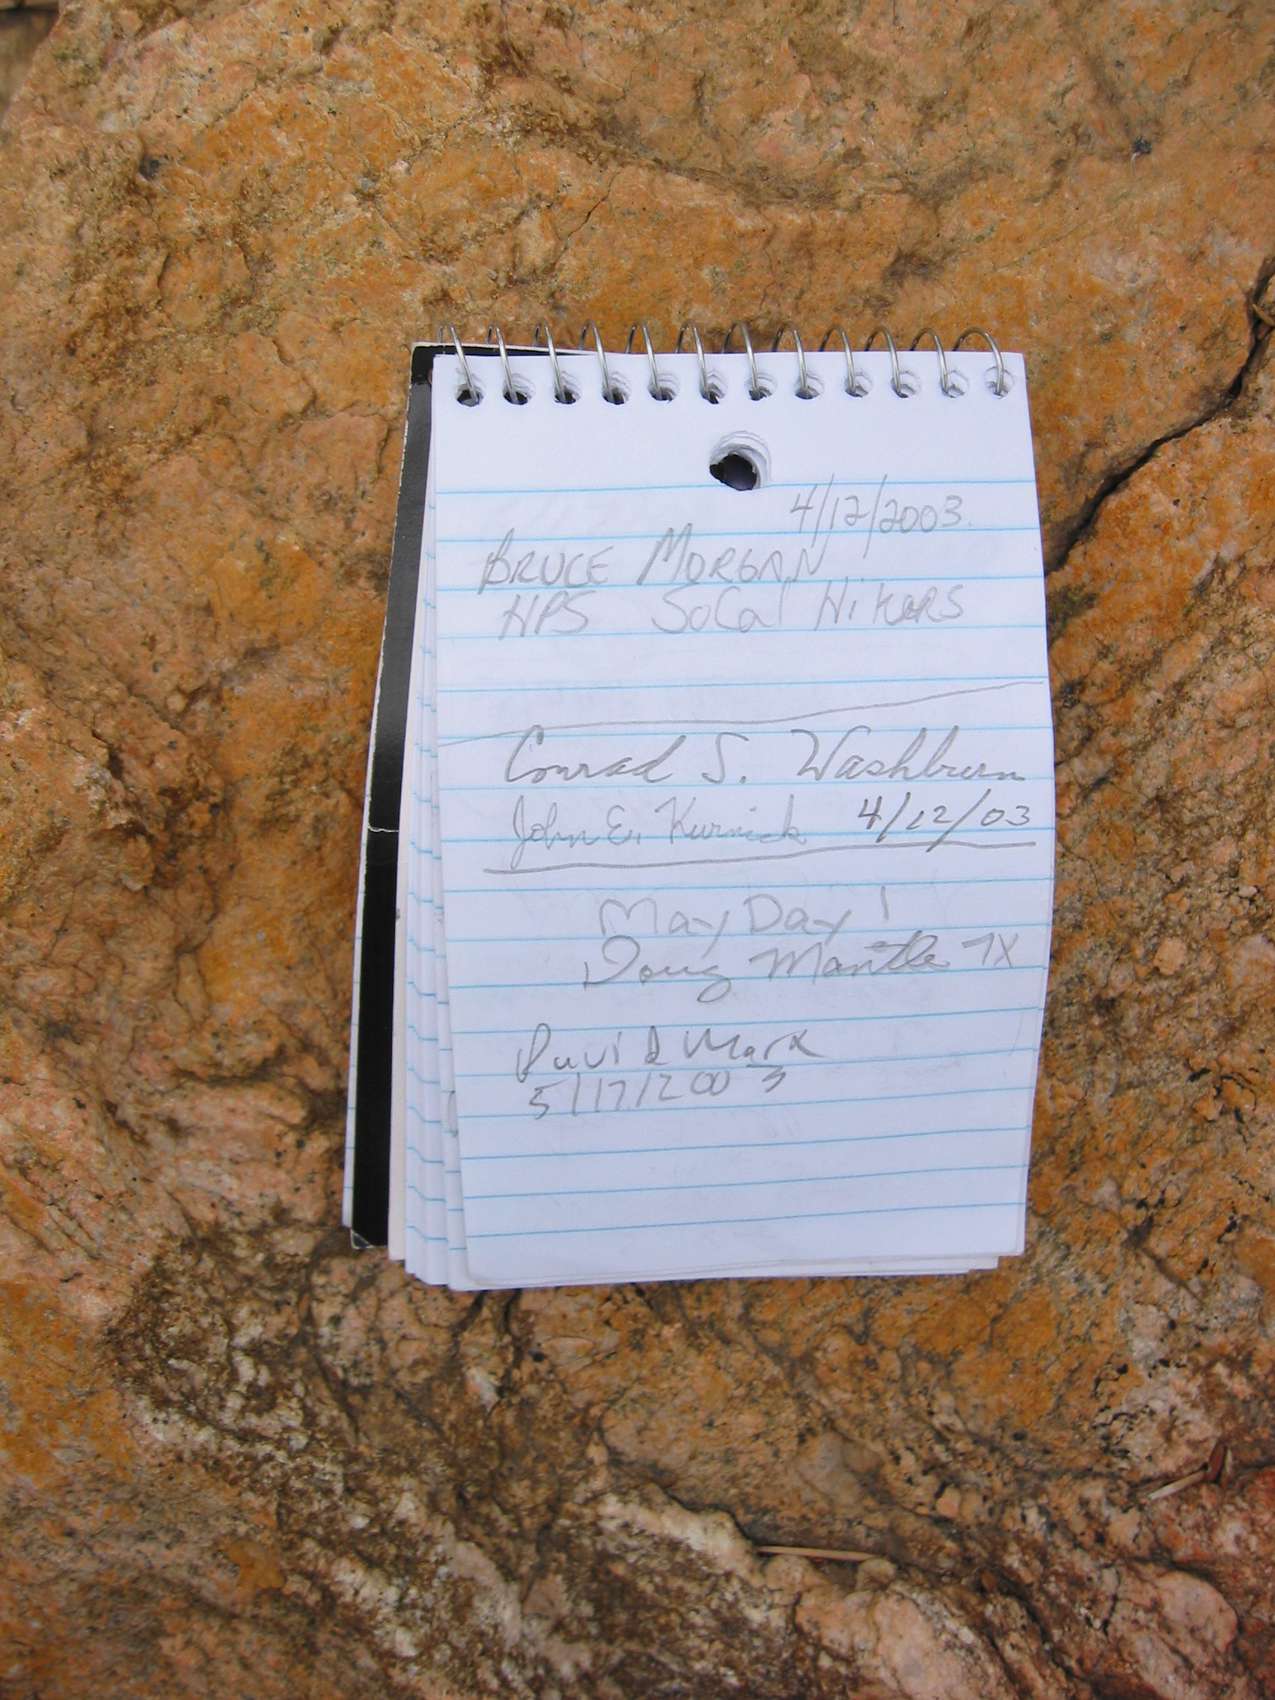 4/12/2003
BRUCE MORGAN
HPS SoCal HikERS
Conrad S. Washburn
John E. Kurnick 4/12/03
May Day!
Doug Mantle 7X
David Mark
5/17/2003